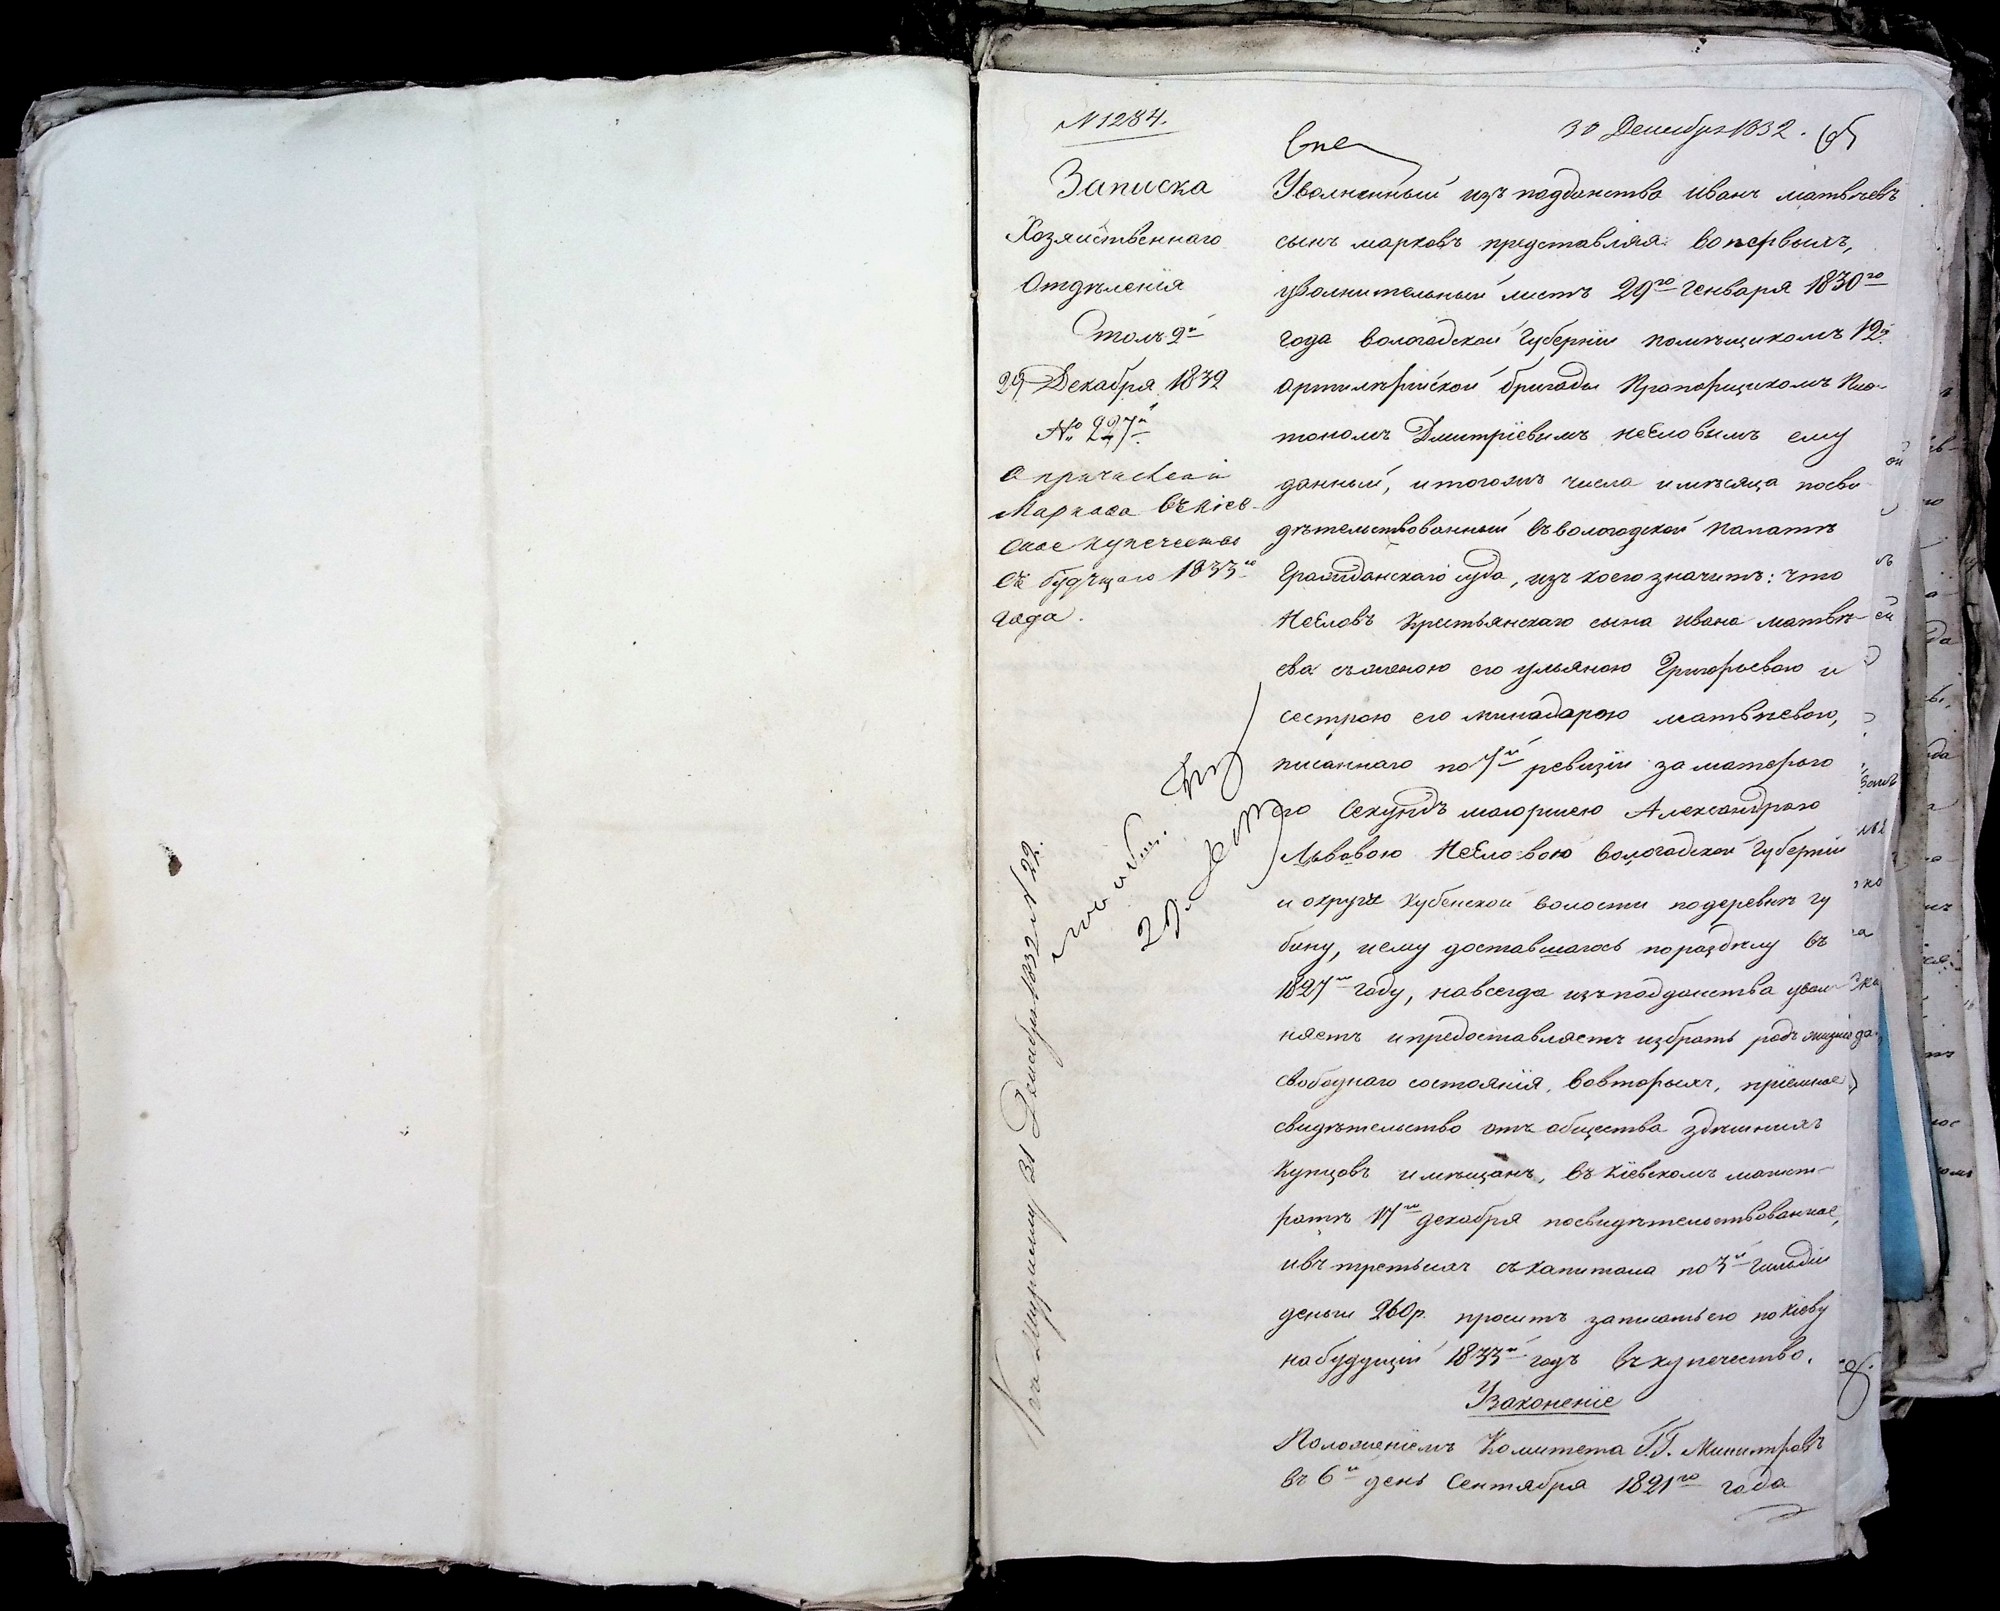 № 1284.
30 Декабря 1832.
Записка
Хозяйственнаго
Отдѣленія
Столъ 2й
29 Декабря 1832
№ 227й
О причисленіи
Маркова въ кіев-
ское купечество
съ будущаго 1833го
года.
Уволненный изъ подданства иванъ матвѣевъ
сынъ марковъ представляя: вопервыхъ,
уволнительный листъ 29го Генваря 1830го
года вологодской губерніи помѣщикомъ 12й
артилерійской бригады Прапорщикомъ Пла-
тономъ Дмитріевымъ неѣловымъ ему
данный, итогожъ числа имѣсяца посви-
дѣтельствованный въвологодской палатѣ
Гражданскаго суда, изъ коего значитъ: что
Неѣловъ Крестьянскаго сына ивана матвѣ-
ева съженою его ульяною Григорьевою и
сестрою его минадорою матвѣевою,
писаннаго по 7й ревизіи за матерью
его Секундъ маіоршею Александрою
Львовою Неѣловою вологодской губерніи
и округи Кубенской волости подеревнѣ гу
бину, иему доставшагося пораздѣлу въ
1827м году, навсегда изъ подданства увол-
няетъ ипредоставляетъ избрать родъ жизни
свободнаго состоянія, вовторыхъ, пріемное
свидѣтельство отъ общества здѣшнихъ
Купцовъ имѣщанъ, въ Кіевскомъ магист-
ратѣ 17го декабря посвидѣтельствованное,
ивъ третьихъ съ капитала по 3й гильдіи
деньги 260р. проситъ записать его по кіеву
на будущій 1833й годъ въ купечество.
Узаконеніе
Положеніемъ Комитета Г.Г. Министровъ
въ 6й день Сентября 1821го года
31 Декабря 1832 № 22.